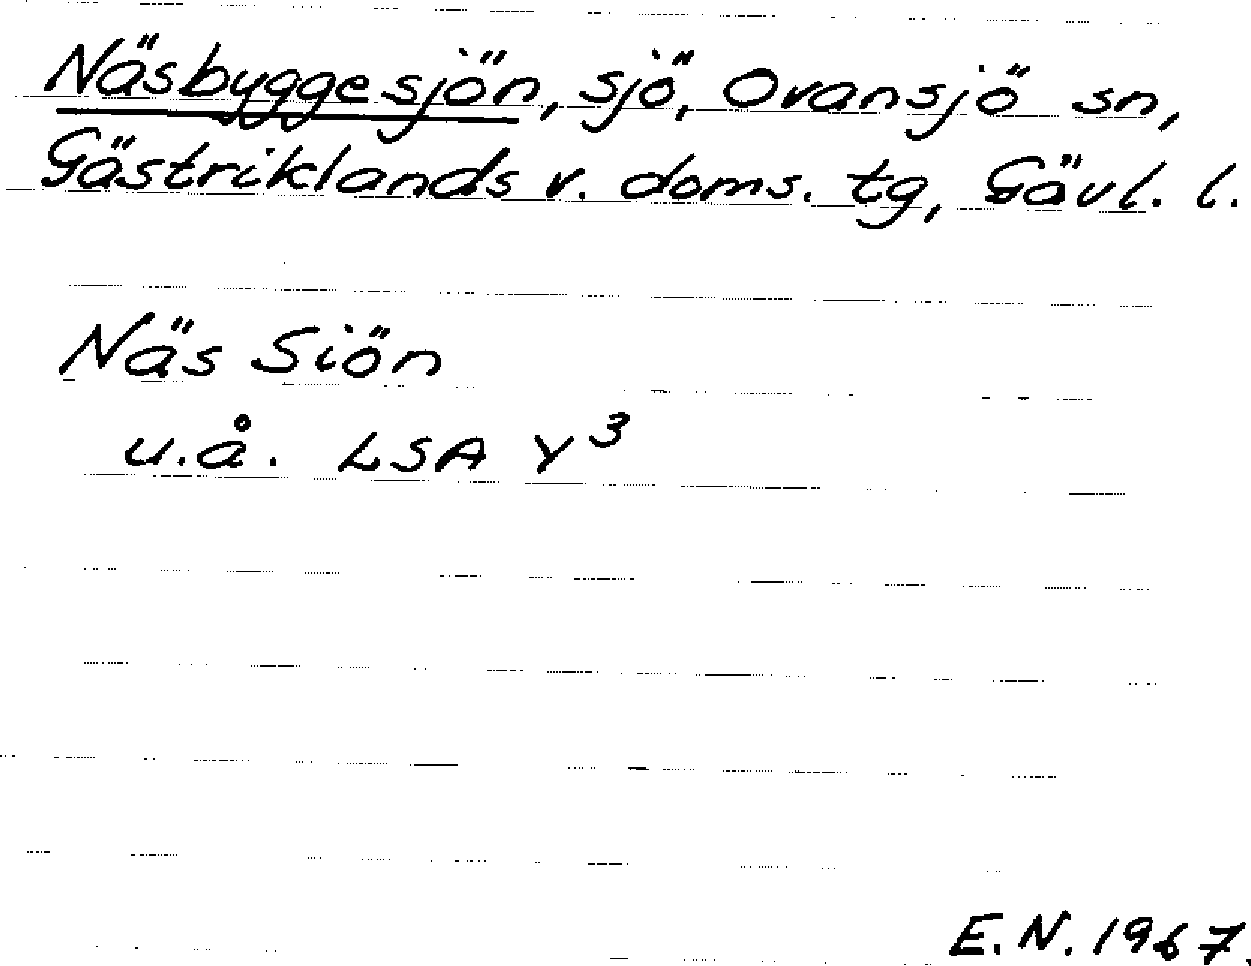 Näsbyggesjön, sjö, Ovansjö sn,
Gästriklands v. doms. tg, Gävl. l.
Näs Siön
u.å. LSA Y³
E.N. 1967.